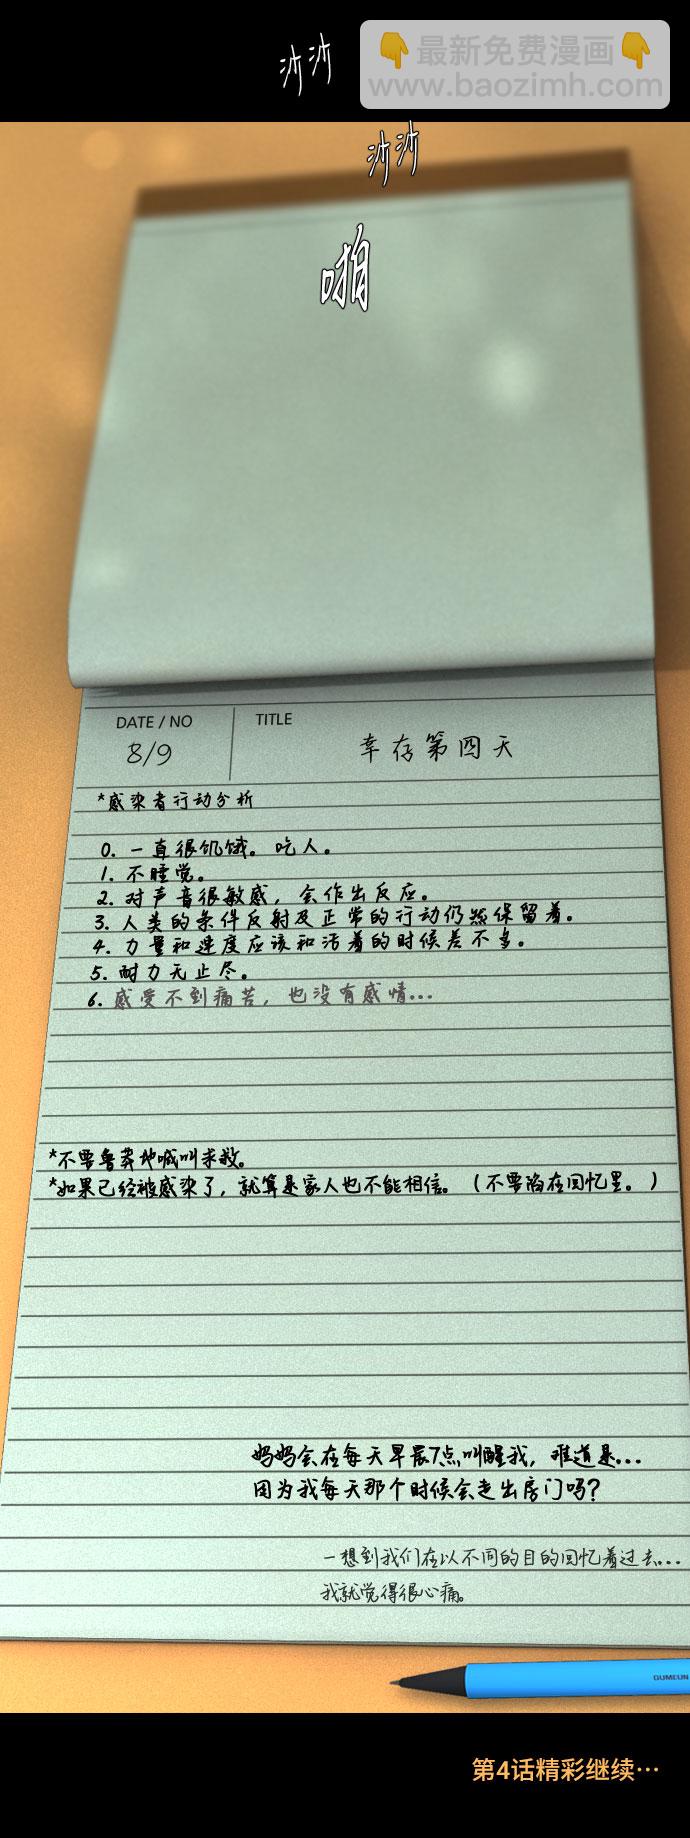 沙沙
👇最新免费漫画👇
www.baozimh.com
沙沙
啪
DATE / NO
TITLE
8/9
幸存第四天
*感染者行动分析
0. 一直很饥饿。吃人。
1. 不睡觉。
2. 对声音很敏感，会作出反应。
3. 人类的条件反射及正常的行动仍然保留着。
4. 力量和速度应该和活着的时候差不多。
5. 耐力无止尽。
6. 感受不到痛苦，也没有感情...
*不要鲁莽地喊叫求救。
*如果已经被感染了，就算是家人也不能相信。（不要陷在回忆里。）
妈妈会在每天早晨7点叫醒我，难道是...
因为我每天那个时候会走出房门吗？
一想到我们在以不同的目的回忆着过去...
我就觉得很心痛。
OUMEUN
第4话精彩继续…